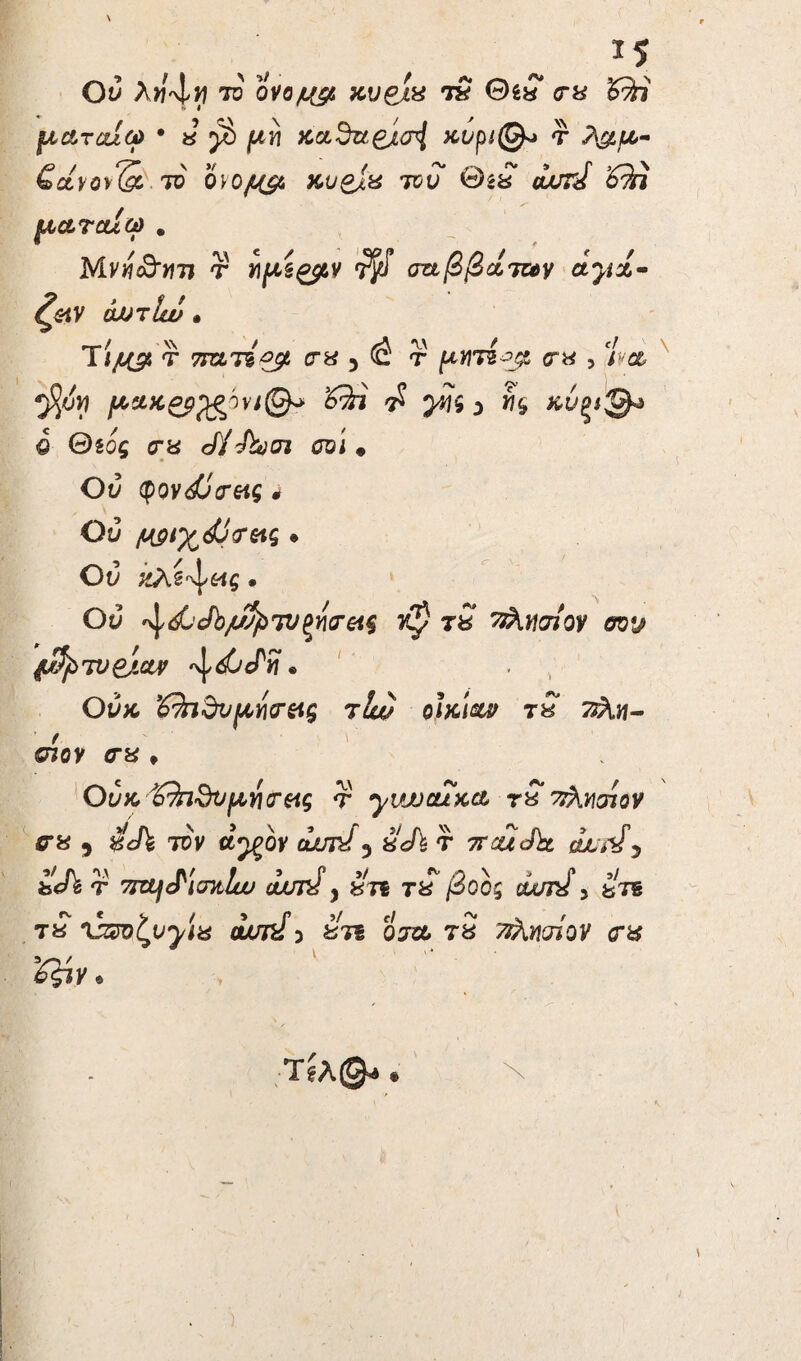 15
Οὐ λήψῃ τὸ ὄνομα κυρίȣ τȣ͂ Θεȣ͂ σȣ ἐπὶ
ματαίῳ · ȣ̓ γὰρ μὴ καθαρίσῃ κύριος τ̀ λαμ-
ϐάνοντα τὸ ὄνομα κυρίȣ τοῦ Θεȣ͂ αὐτȣ͂ ἐπὶ
ματαίῳ .
Μνήσθητι τ̀ ἡμέραν τῶν σαββάτων ἁγιά-
ζειν αὐτὴν .
Τίμα τ̀ πατέρα σȣ , καὶ τ̀ μητέρα σȣ , ἵνα
γένῃ μακροχρόνιος ἐπὶ τῆς γῆς , ἧς κύριος
ὁ Θεός σȣ δίδωσι σοί .
Οὐ φονεύσεις .
Οὐ μοιχεύσεις .
Οὐ κλέψεις .
Οὐ ψευδομαρτυρήσεις κατὰ τȣ͂ πλησίον σου
μαρτυρίαν ψευδῆ .
Οὐκ ἐπιθυμήσεις τὴν οἰκίαν τȣ͂ πλη-
σίον σȣ .
Οὐκ ἐπιθυμήσεις τ̀ γυναῖκα τȣ͂ πλησίον
σȣ , ȣ̓δὲ τὸν ἀγρὸν αὐτȣ͂ , ȣ̓δὲ τ̀ παῖδα αὐτȣ͂ ,
ȣ̓δὲ τ̀ παιδίσκην αὐτȣ͂ , ȣ̓́τε τȣ͂ βοὸς αὐτȣ͂ , ȣ̓́τε
τȣ͂ ὑποζυγίȣ αὐτȣ͂ , ȣ̓́τε ὅσα τȣ͂ πλησίον σȣ
ἐϛίν .
Τέλος .